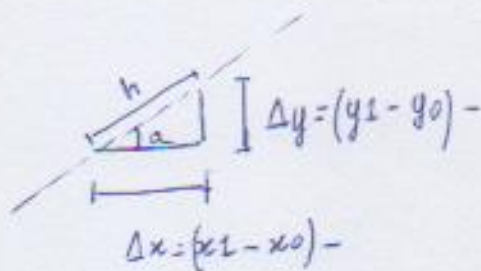 h
a
Δy=(y1-y0)-
Δx=(x1-x0)-